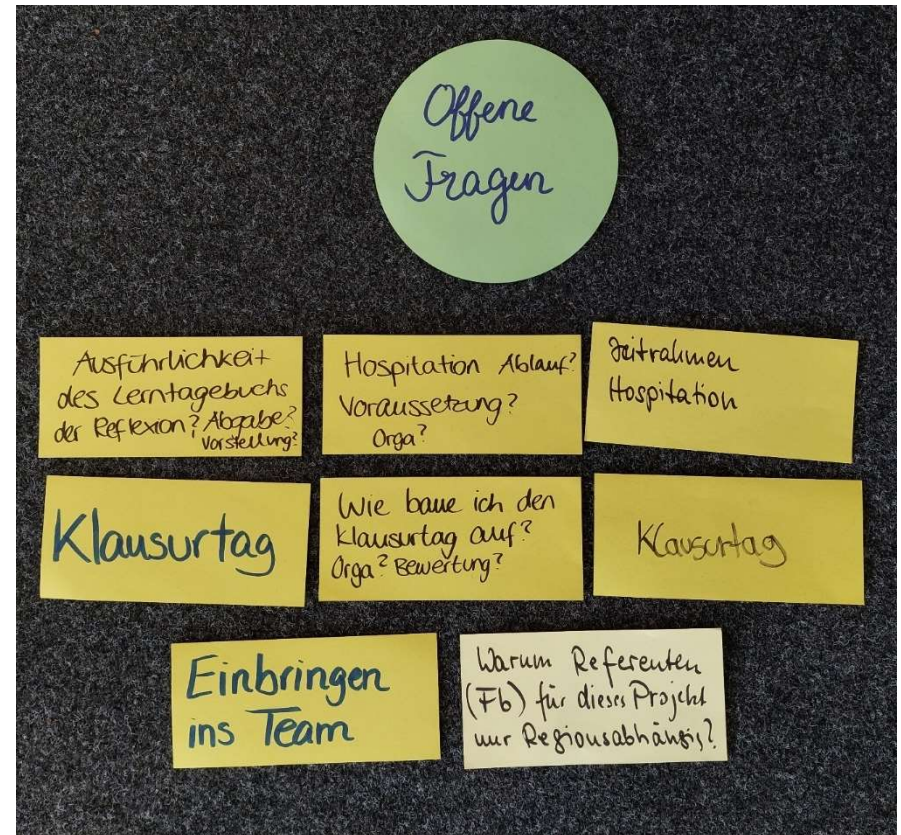 Offene
Fragen
Ausführlichkeit
des Lerntagebuchs
der Reflexion? Abgabe?
Vorstellung?
Hospitation Ablauf?
Voraussetzung?
Orga?
Zeitrahmen
Hospitation
Klausurtag
Wie baue ich den
Klausurtag auf?
Orga? Bewertung?
Klausurtag
Einbringen
ins Team
Warum Referenten
(Fb) für dieses Projekt
nur Regionsabhängig?